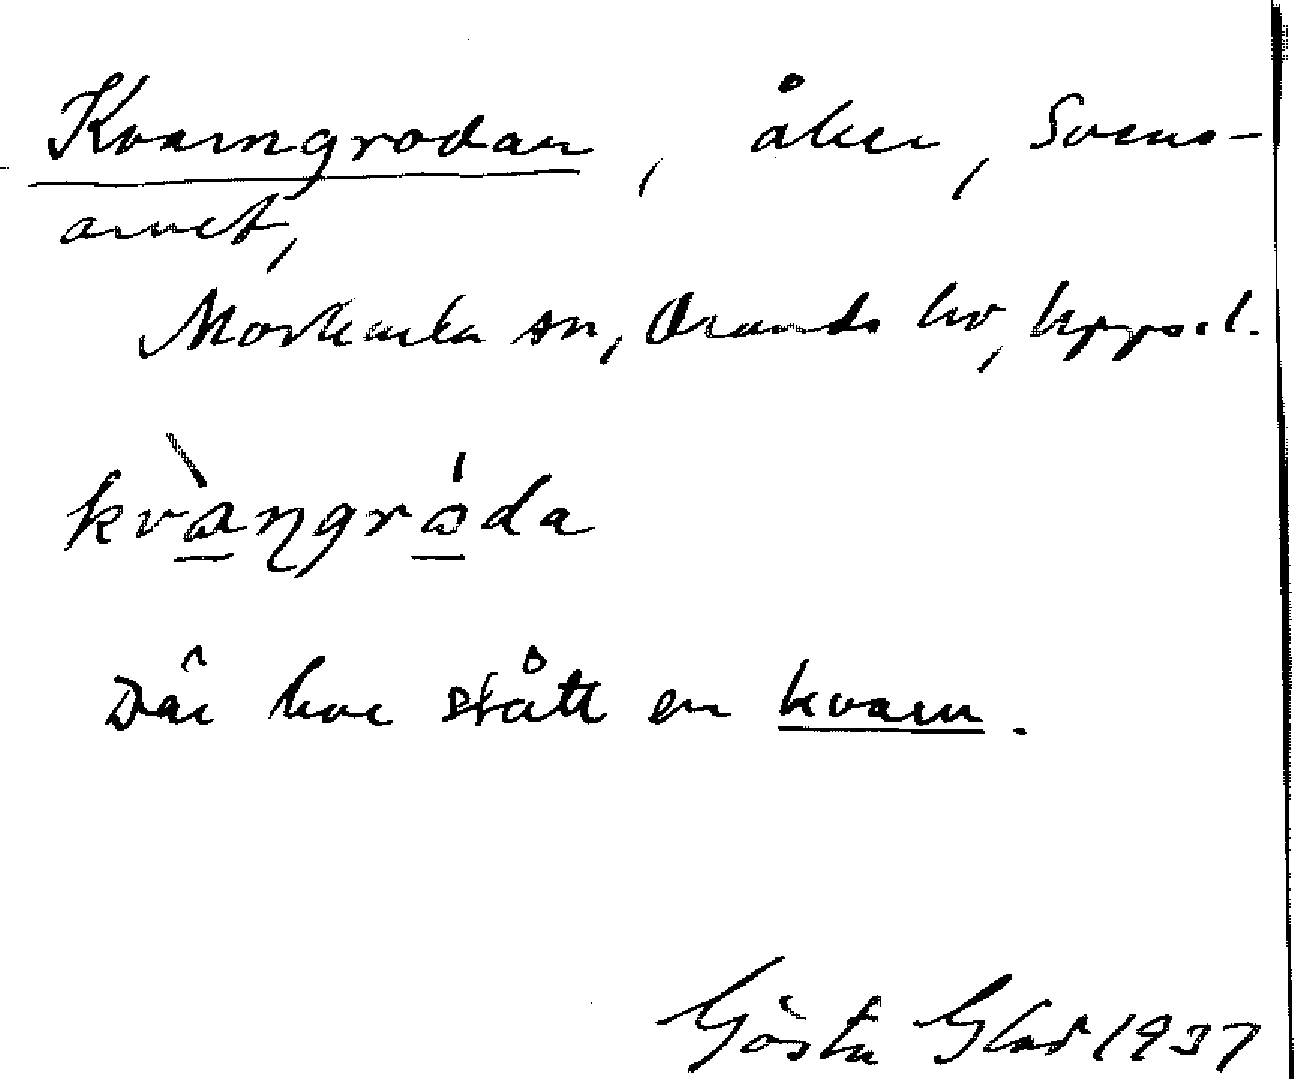 Kvarngrodan, åker, Svens-
arvet,
Morkarla sn, Olands hd, Upps. l.
kvàŋgróda
Där har stått en kvarn.
Gösta Glad 1937